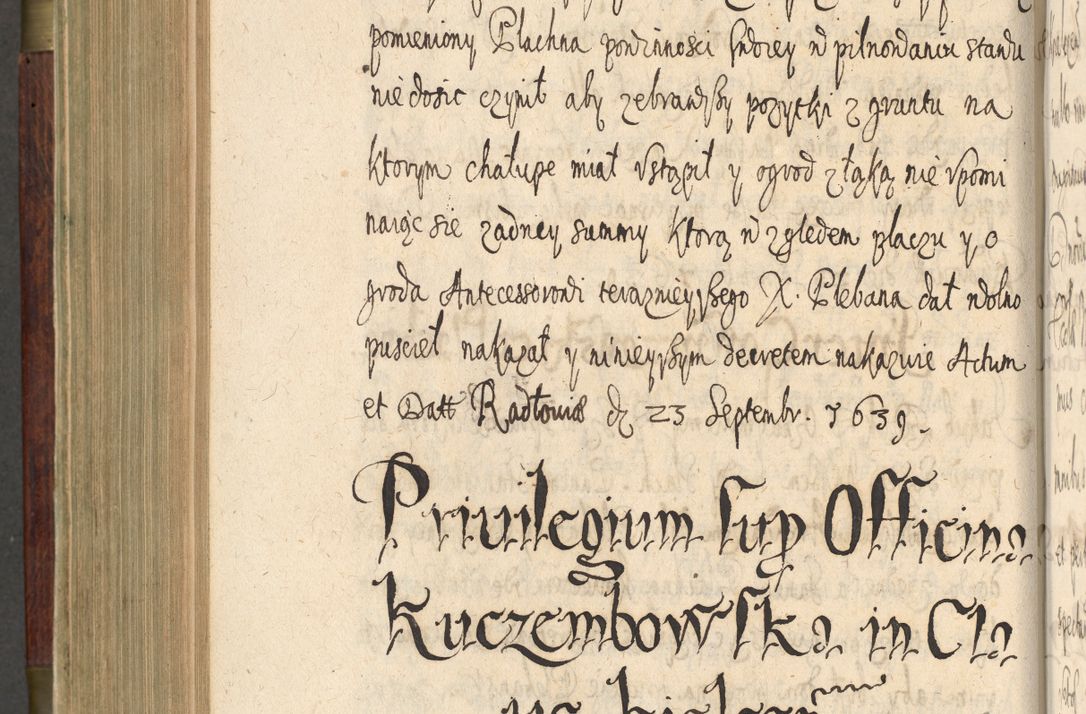 pomieniony Plachna powinnosci swoiey w pilnowaniu stawu
nie dosic czynił aby zebrawszy pozytki z gruntu na
ktorym chałupe miał vstąpił y ogrod z łąką nie vpomi
naiąc sie zadney summy ktorą w zgledem placzu y o
groda Antecessorowi teraznieyszego X. Plebana dał wolno
puscieł nakazał y ninieyszym decretem nakazuie Actum
et Datt Radłoviæ d 23 Septembr. 1639.
Priuilegium sup Officina
Kuczembowska in Cla